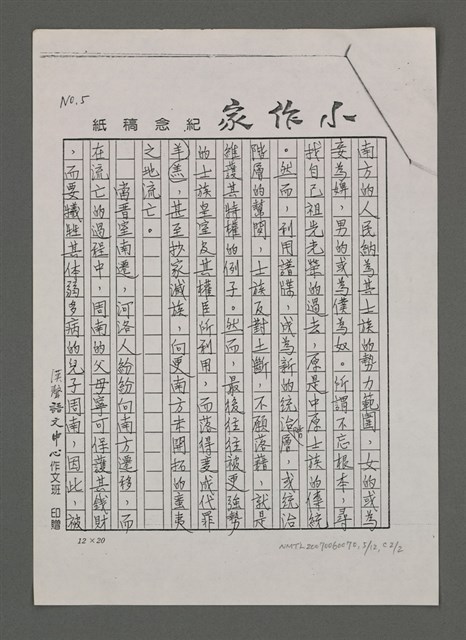 NO.5
小作家紀念稿紙
南方的人民納為其士族的勢力範圍，女的或為
妾為婢，男的或為僕為奴。所謂不忘根本，尋
找自己祖先光榮的過去，原是中原士族的傳統
。然而，利用譜牒，成為新的統治階層，或統治
階層的幫閒，士族反對土斷，不願落藉，就是
維護其特權的例子。然而，最後往往被更強勢
的士族皇室及其權臣所利用，而落得變成代罪
羊羔，甚至抄家滅族，向更南方未開拓的蠻夷
之地流亡。
當晉室南遷，河洛人紛紛向南方遷移，而
在流亡的過程中，周南的父母寧可保護其錢財
，而要犧牲其体弱多病的兒子周南，因此，被
漢聲語文中心作文班 印贈
12×20
NMTL20070060070, 5/12, C2/2